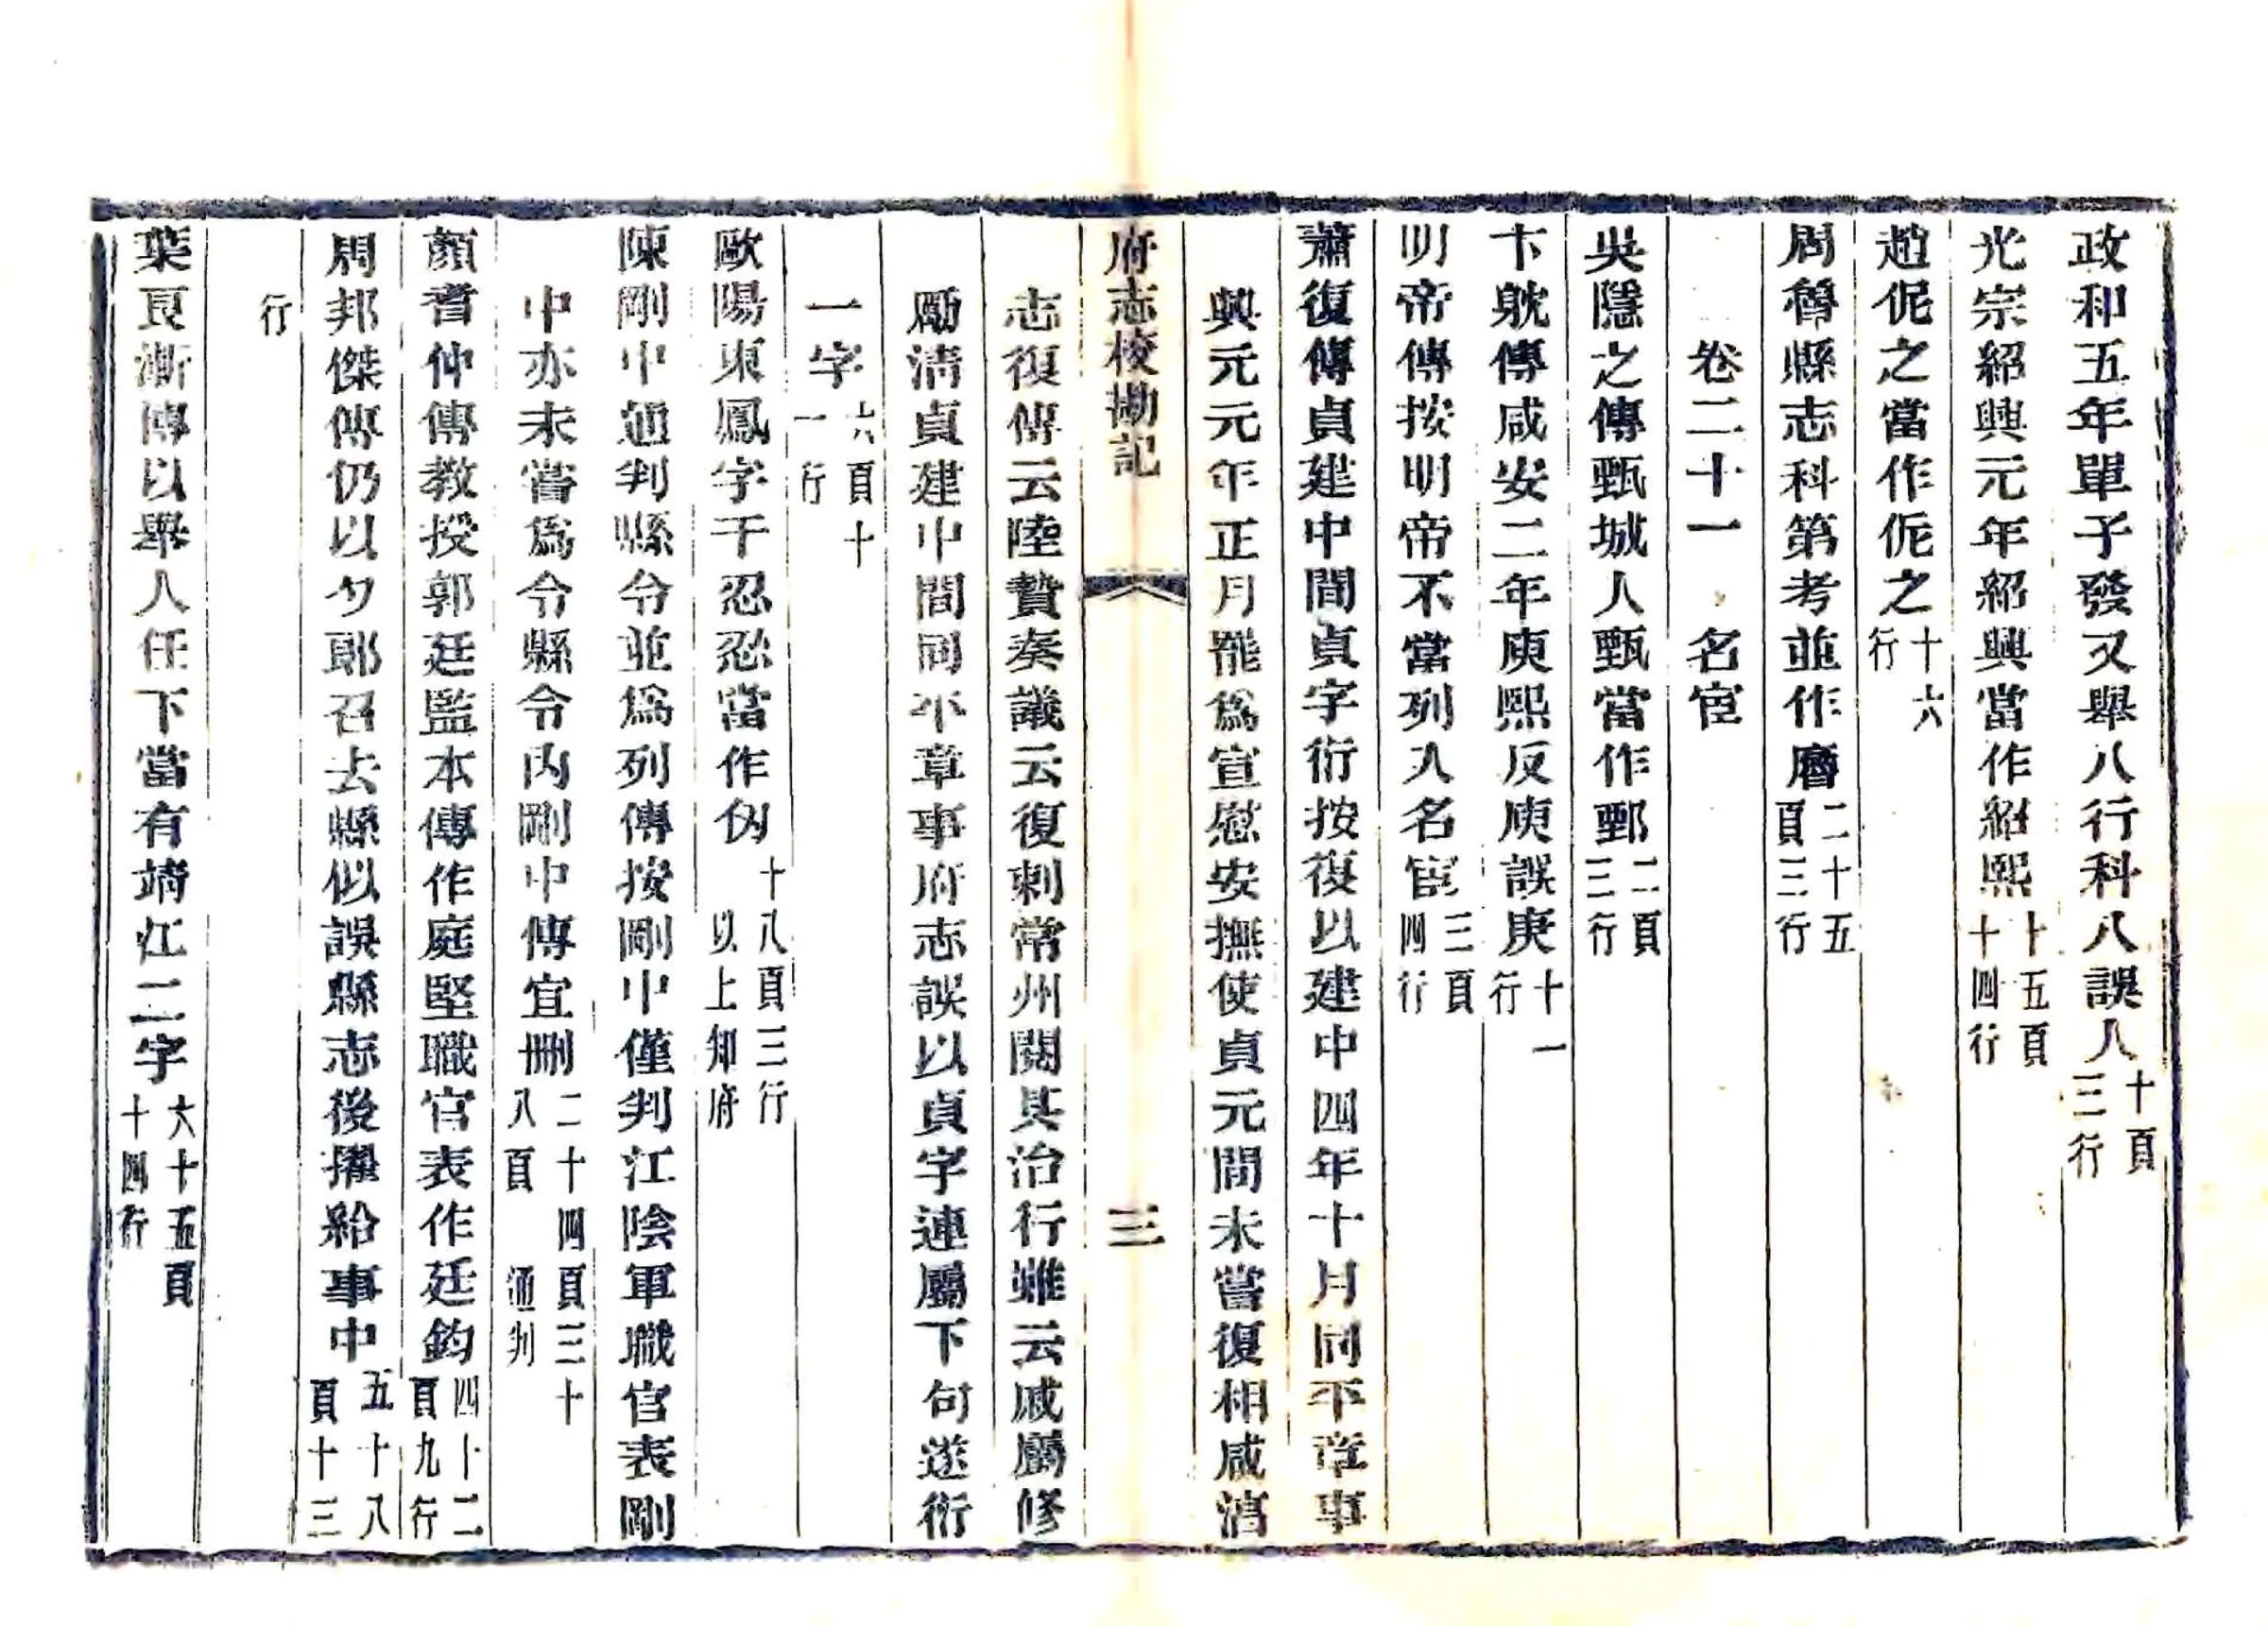 政和五年單子發又舉八行科八誤人十頁三行
光宗紹興元年紹興當作紹熙十五頁十四行
趙伲之當作伲之十六行
周魯縣志科第考並作曆二十五頁三行
卷二十一　名宦
吳隱之傳甄城人甄當作鄄二頁三行
卞躭傳咸安二年庾熙反庾誤庚十一行
明帝傳按明帝不當列入名宦三頁四行
蕭復傳貞建中間貞字衍按復以建中四年十月同平章事
興元元年正月罷爲宣慰安撫使貞元間未嘗復相咸淸
府志校勘記
三
志復傳云陸贄奏議云復刺常州閱其治行雖云戚屬修
勵淸貞建中間同平章事府志誤以貞字連屬下句遂衍
一字六頁十一行
歐陽東鳳字干忍忍當作仞十八頁三行以上知府
陳剛中通判縣令並爲列傳按剛中僅判江陰軍職官表剛
中亦未嘗爲令縣令內剛中傳宜刪二十四頁三十八頁通判
顏耆仲傳教授郭廷監本傳作庭堅職官表作廷鈞四十二頁九行
周邦傑傳仍以夕郞召去縣似誤縣志後擢給事中五十八頁十三
行
葉良漸傳以舉人任下當有靖江二字六十五頁十四行